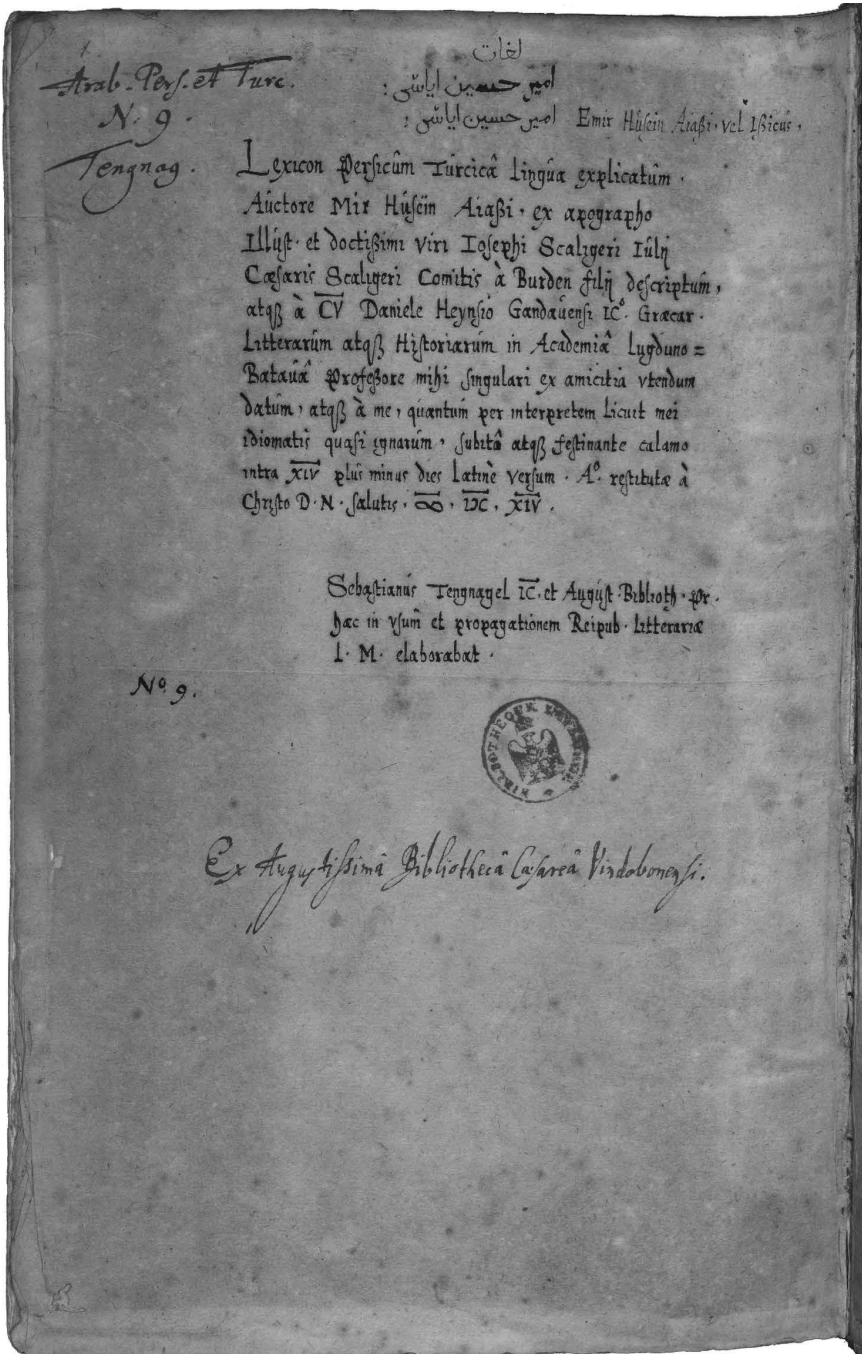 1.
Arab. Pers. et Turc.
N. 9.
Tengnag.
لغات
امير حسين اياشى :
امير حسين اياشى : Emir Húsein Aiaßi. vel Ißicus.
Lexicon Persicûm Túrcicâ linguâ explicatûm.
Aúctore Mir Húsëin Aiaßi, ex apographo
Illúst. et doctißimi viri Iosephi Scaligeri Iúlij
Cæsaris Scaligeri Comitis à Burden filij descriptúm,
atqꝫ à CV Daniele Heynsio Gandaúensi IC⁰. Græcar.
Litterarúm atqꝫ Historiarúm in Academiâ Lugduno=
Bataúâ Profeßore mihi singulari ex amicitia vtendum
datúm, atqꝫ à me, quantum per interpretem licuit mei
idiomatis quasi ignarúm, subitô atqꝫ festinante calamo
intra XIV plús minus dies Latinè versum. A⁰. restitutæ à
Christo D. N. salutis. ∞. IƆC. XIV.
Sebastianús Tengnagel IC. et Augúst. Biblioth. Pr.
hæc in vsum et propagationem Reipub. Litterariæ
L. M. elaborabat.
Nº 9.
BIBLIOTHEQUE IMPERIALE
Ex Augustissimâ Bibliothecâ Cæsareâ Vindobonensi.